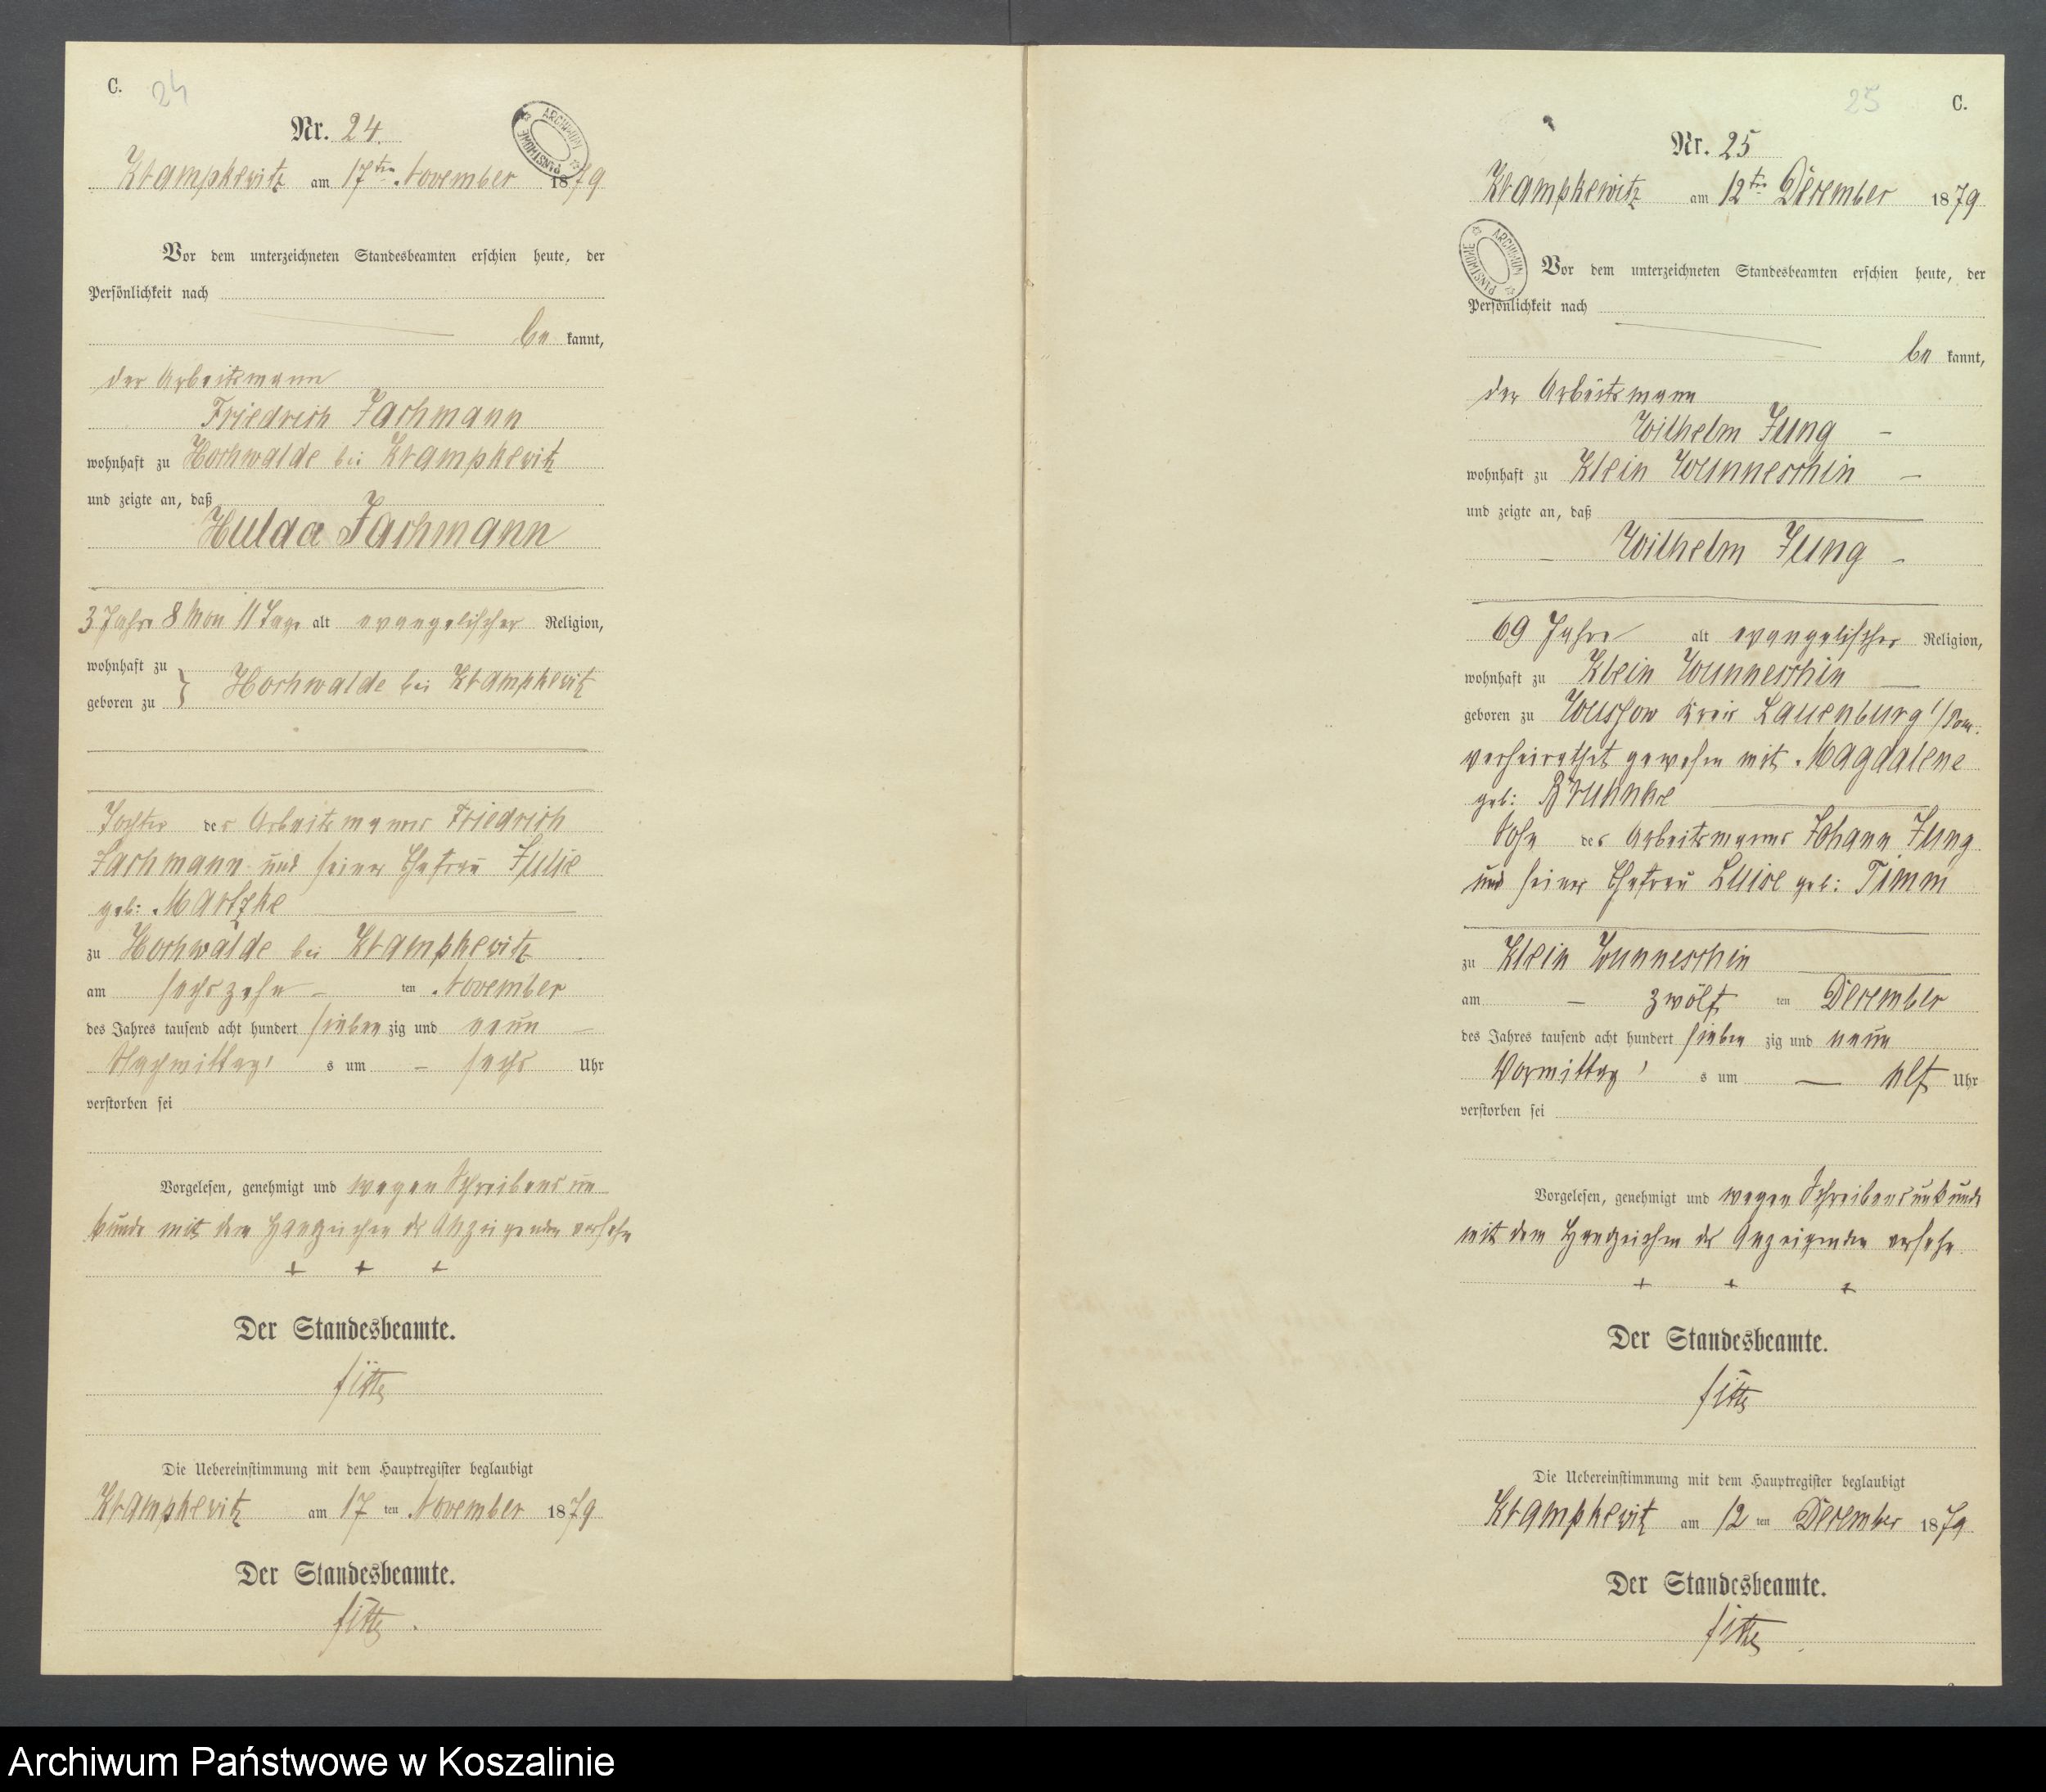 C.
24
Nr. 24.
ARCHIWUM PAŃSTWOWE
Krampkewitz am 17ten November 1879
Vor dem unterzeichneten Standesbeamten erschien heute, der
Persönlichkeit nach
be kannt,
der Arbeitsmann
Friedrich Jachmann
wohnhaft zu Hochwalde bei Krampkewitz
und zeigte an, daß
Hulda Jachmann
3 Jahre 8 Mon 11 Tage alt evangelischer Religion,
wohnhaft zu
geboren zu } Hochwalde bei Krampkewitz
Tochter des Arbeitsmanns Friedrich
Jachmann und seiner Ehefrau Julie
geb:
zu Hochwalde bei Krampkewitz
am sechszehn ten November
des Jahres tausend acht hundert sieben zig und neun
Nachmittag's um sechs Uhr
verstorben sei
Vorgelesen, genehmigt und wegen Schreibens un
kunde mit dem Handzeichen des Anzeigenden versehen
+ + +
Der Standesbeamte.
Die Uebereinstimmung mit dem Hauptregister beglaubigt
Krampkewitz am 17 ten November 1879
Der Standesbeamte.
25
C.
Nr. 25
Krampkewitz am 12ten December 1879
ARCHIWUM PAŃSTWOWE
Vor dem unterzeichneten Standesbeamten erschien heute, der
Persönlichkeit nach
be kannt,
der Arbeitsmann
Wilhelm Jung
wohnhaft zu Klein Wunneschin
und zeigte an, daß
Wilhelm Jung
69 Jahre alt evangelischer Religion,
wohnhaft zu Klein Wunneschin
geboren zu Wussow Kreis Lauenburg i/Pom:
verheirathet gewesen mit Magdalene
geb:
Sohn des Arbeitsmanns Johann Jung
und seiner Ehefrau Luise geb: Timm
zu Klein Wunneschin
am zwölf ten December
des Jahres tausend acht hundert sieben zig und neun
Vormittag's um elf Uhr
verstorben sei
Vorgelesen, genehmigt und wegen Schreibensunkunde
mit dem Handzeichen des Anzeigenden versehen
+ + +
Der Standesbeamte.
Die Uebereinstimmung mit dem Hauptregister beglaubigt
Krampkewitz am 12 ten December 1879
Der Standesbeamte.
Archiwum Państwowe w Koszalinie